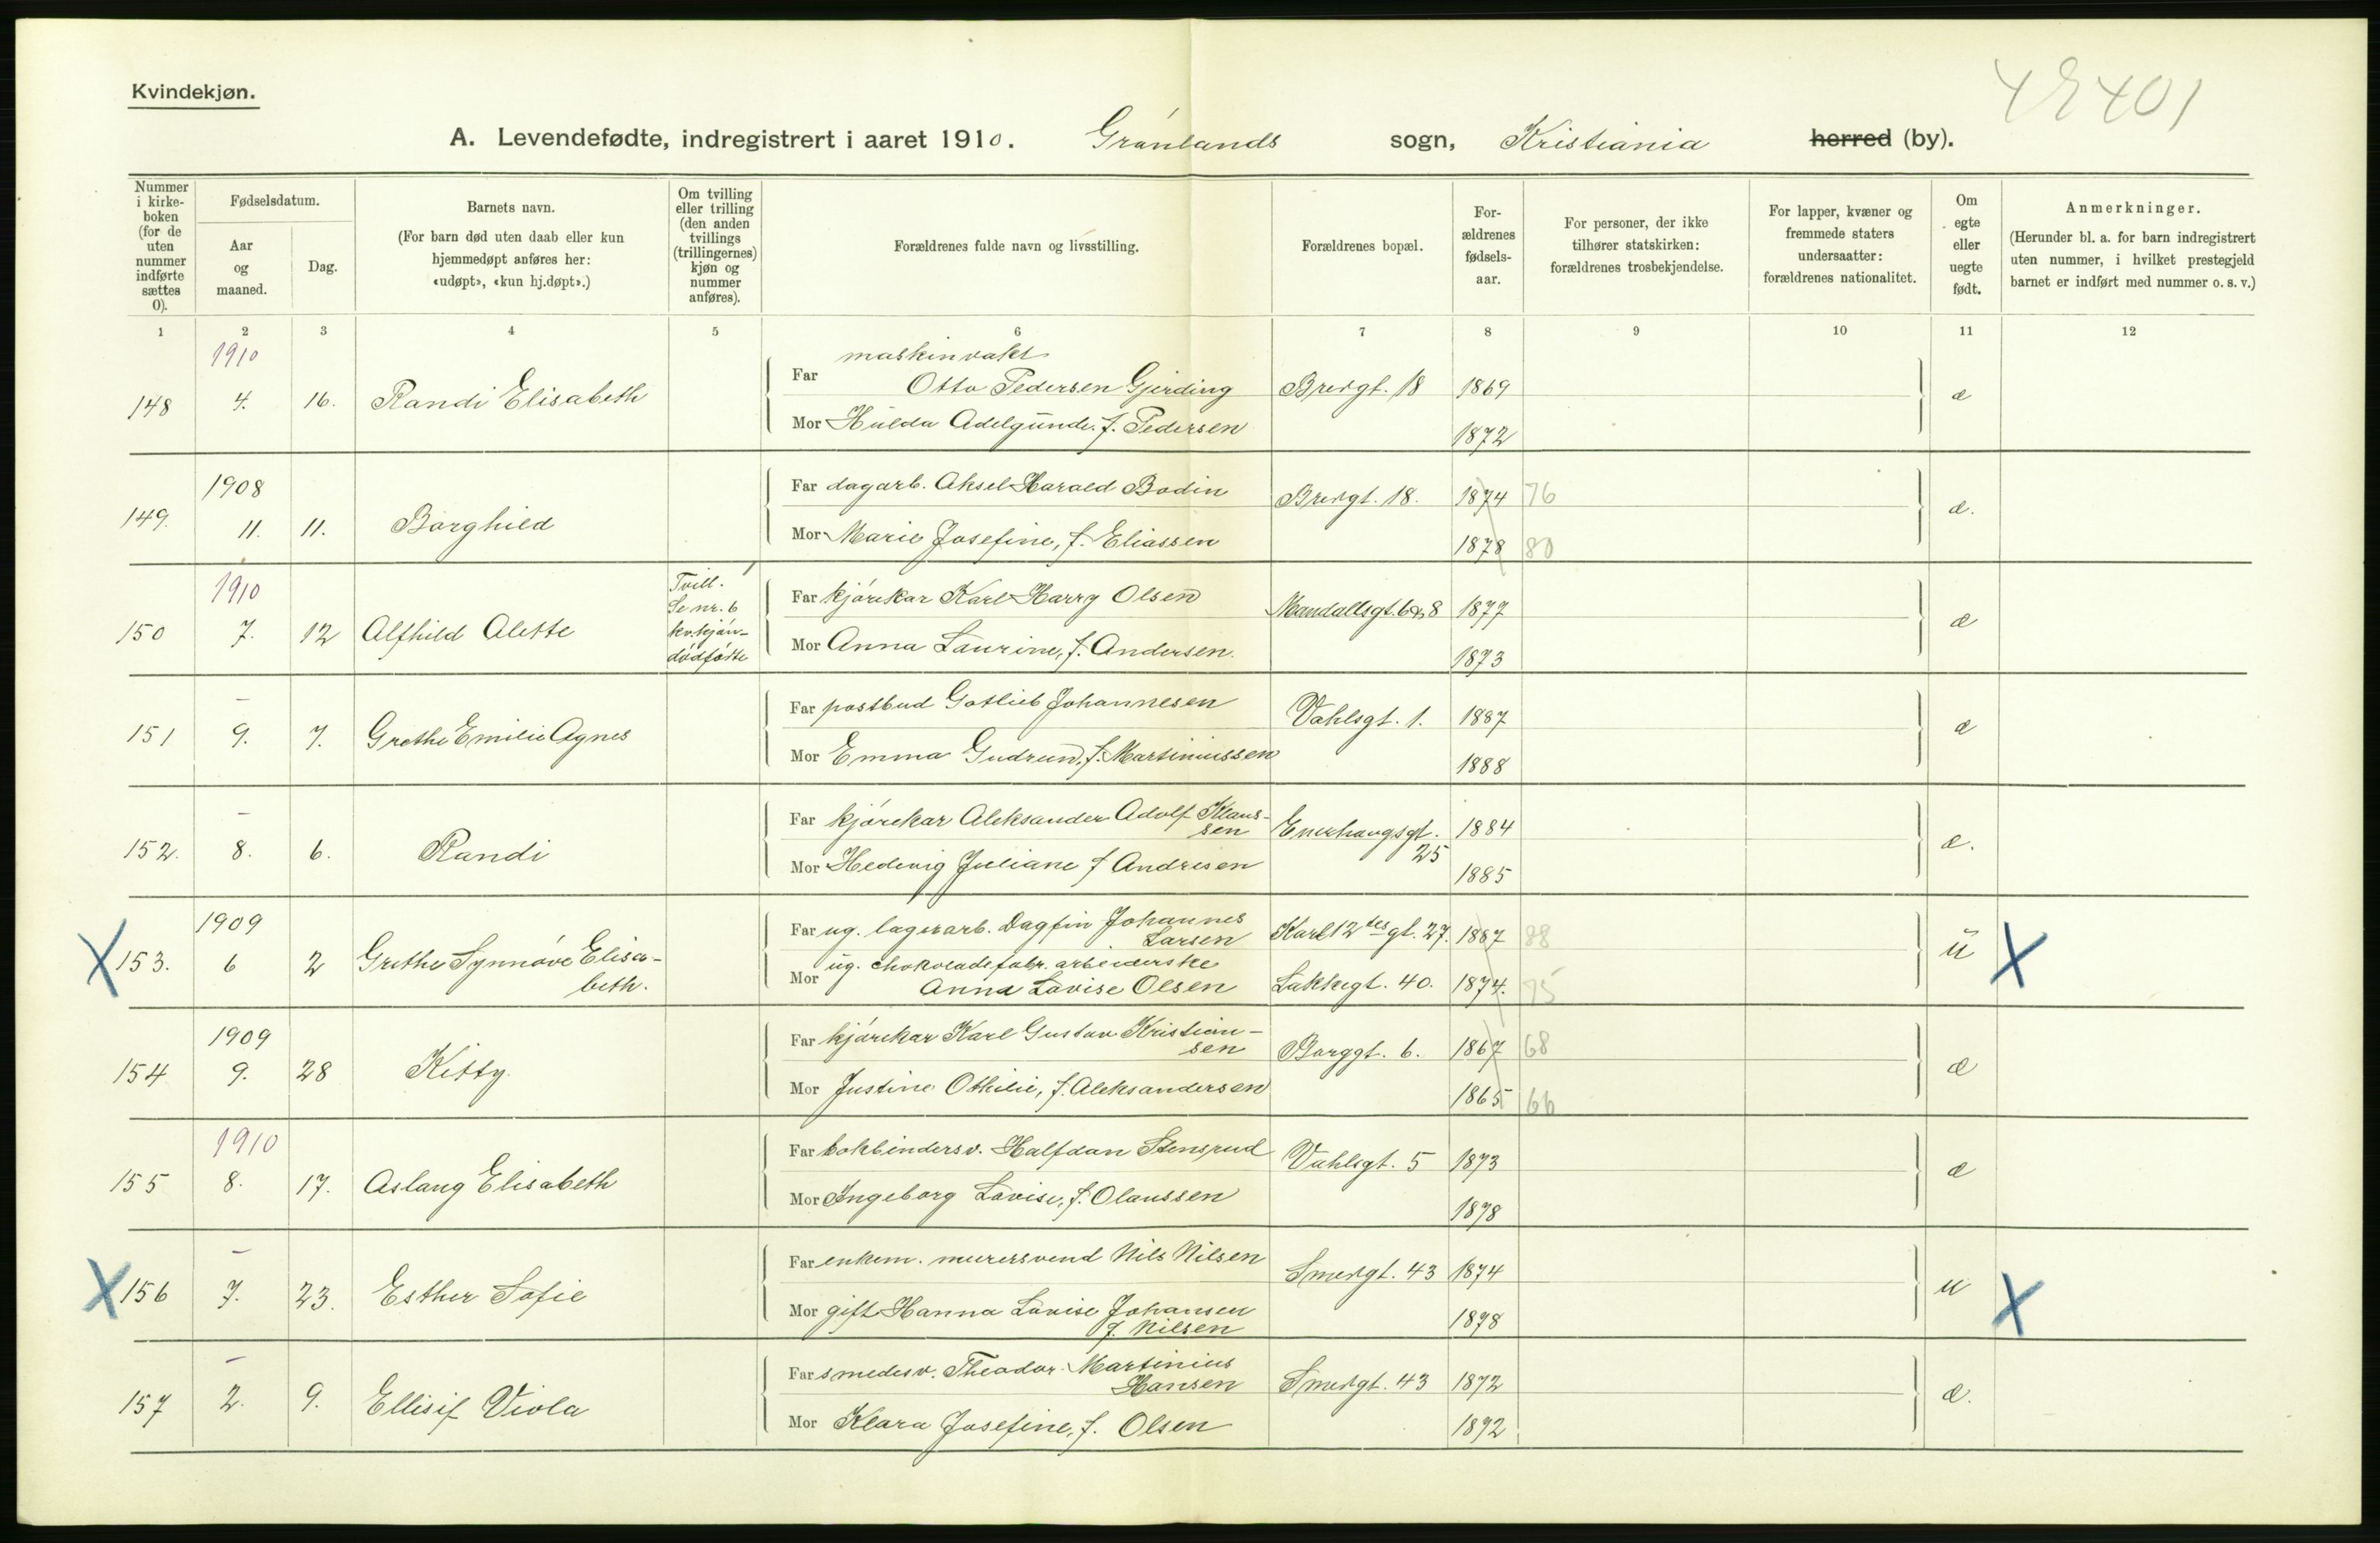 Kvindekjøn.
A. Levendefødte, indregistrert i aaret 1910. Grønlands sogn, Kristiania herred (by).
Nummer i kirkeboken (for de uten nummer indførte sættes 0).
Fødselsdatum.
Aar og maaned.
Dag.
Barnets navn.
(For barn død uten daab eller kun hjemmedøpt anføres her: «udøpt», «kun hj.døpt».)
Om tvilling eller trilling (den anden tvillings (trillingernes) kjøn og nummer anføres).
Forældrenes fulde navn og livsstilling.
Forældrenes bopæl.
Forældrenes fødselsaar.
For personer, der ikke tilhører statskirken: forældrenes trosbekjendelse.
For lapper, kvæner og fremmede staters undersaatter: forældrenes nationalitet.
Om egte eller uegte født.
Anmerkninger.
(Herunder bl. a. for barn indregistrert uten nummer, i hvilket prestegjeld barnet er indført med nummer o. s. v.)
1 2 3 4 5 6 7 8 9 10 11 12
1910
maskinvakt
148 4. 16. Randi Elisabeth Far Otto Pedersen Gjerding Bredgt. 18 1869 æ
Mor Hulda Adelgunde. f. Pedersen 1872
1908
149. 11. 11. Borghild Far dagarb. Aksel Harald Bodin Bredgt. 18. 1874 76 æ.
Mor Marie Josefine, f. Eliassen 1878 80
1910
150 7. 12 Alfhild Alette Tvill. Se nr. 6 kv.kjøn- dødfødte Far kjørekar Karl Harry Olsen Mandallsgt. 6 & 8 1877 æ
Mor Anna Laurine, f. Andersen. 1873
–
151 9. 7. Grethe Emilie Agnes Far postbud Gotlieb Johannesen Vahlsgt. 1. 1887 æ
Mor Emma Gudrun, f. Martiniussen 1888
–
152. 8. 6. Randi Far kjørekar Aleksander Adolf Klaussen Enerhaugsgt. 25 1884 æ.
Mor Hedevig Juliane f Andresen 1885
1909
X 153. 6 2 Grethe Synnøve Elisabeth. Far ug. lagerarb. Dagfin Johannes Larsen Karl 12 tes gt. 27. 1887 88 u X
Mor ug. chokoladefabr. arbeiderske Anna Lovise Olsen Lakkegt. 40. 1874. 75
1909
154 9. 28 Kitty. Far kjørekar Karl Gustav Kristiansen Borggt. 6. 1867 68 æ
Mor Justine Othilie, f. Aleksandersen 1865 66
1910
155 8. 17. Aslaug Elisabeth Far bokbindersv. Halfdan Stensrud Vahlsgt. 5 1873 æ
Mor Ingeborg Lovise, f. Olaussen 1878
–
X 156 7. 23. Esther Sofie Far enkem. murersvend Nils Nilsen Smedgt. 43 1874 u X
Mor gift Hanna Lovise Johansen f. Nilsen 1878
–
157 2. 9. Ellisif Viola Far smedesv. Theodor Martinius Hansen Smedgt. 43 1872 æ.
Mor Klara Josefine, f. Olsen 1872